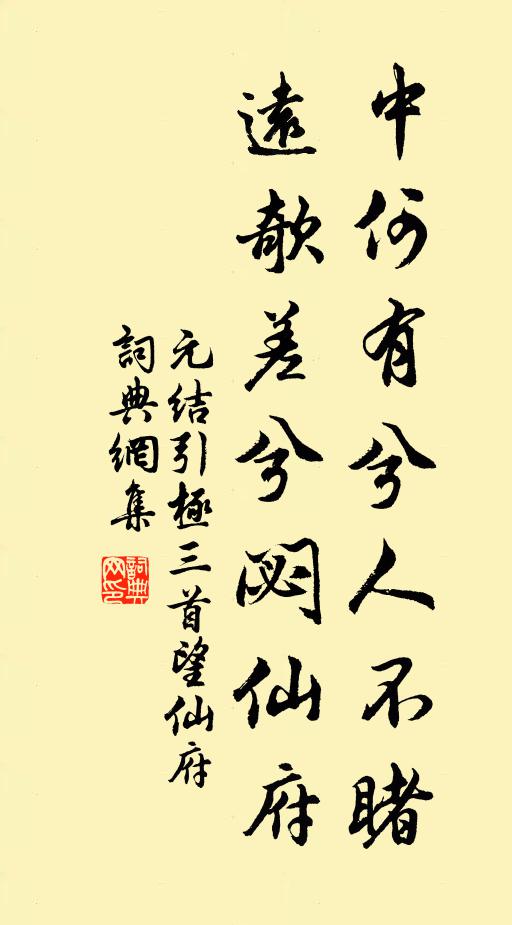 中何有兮人不睹
遠欹差兮閟仙府
元结引極三首望仙府
詞典網集
詞典
网印